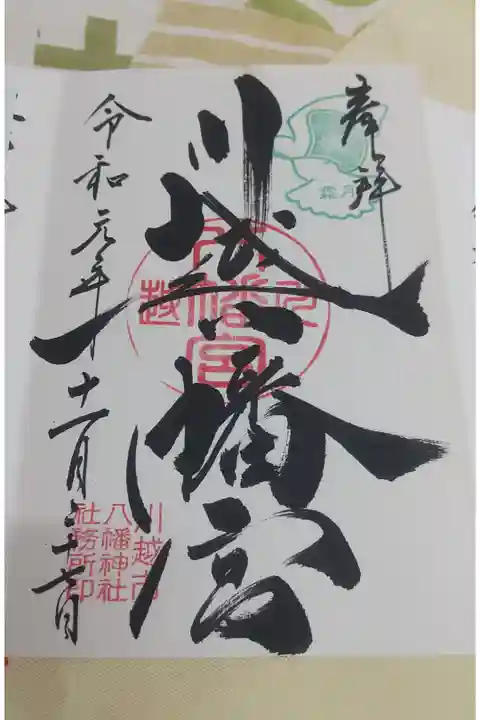 奉拝
霜月
川越八幡宮
令和元年十一月二十七日
川越市
八幡神社
社務所印